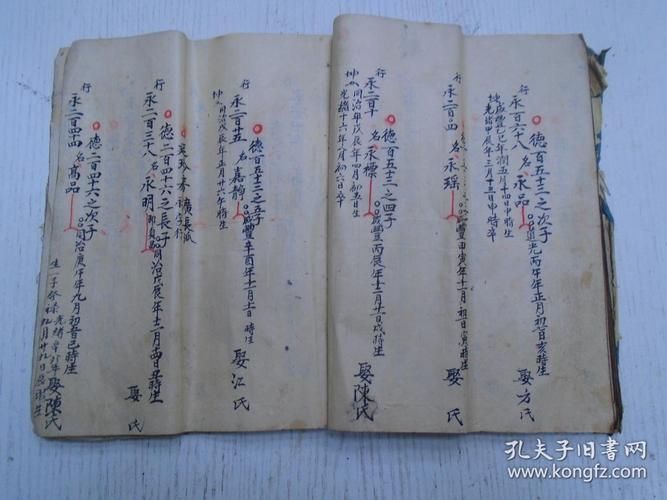 德百五十三之次子
行永二百六十八名永品 道光丙午年正月初二日亥時生 娶方氏
坤咸豐乙巳年潤五月十四日申時生
光緒甲辰年三月十三日申時卒
行永二百四名永瑶 咸豐甲寅年十一月初一日寅時生 娶 氏
德百五十三之四子
行永二百十名永標 咸豐丙辰年十二月廿一日戌時生 娶陳氏
坤 同治年戊辰年四月初五日生
光緒十六年八月初六日卒
德百五十三之五子
行永二百廿五名嘉靜 咸豐辛酉年十一月十一日 時生 娶江氏
坤 同治戊辰年五月廿六午時生
德二百四十六之長子
行永二百三十八名永明 同治戊辰年十二月十四日丑時生 娶 氏
德二百四十六之次子
行永二百四十四名高品 同治庚午年九月初吾巳時生 娶陳氏
生一子癸禄 光緒 年九月廿九日 時生
孔夫子旧書网
www.kongfz.com